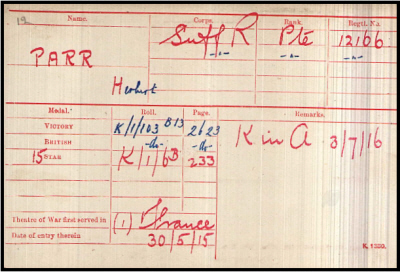 Name. Corps. Rank. Regtl. No.
PARR Suff R Pte 12166
Herbert -"- -"- -"-
Medal. Roll. Page. Remarks.
VICTORY K/1/103 B13 2623 K in A 3/7/16
BRITISH -do- -do-
15 STAR K/1/6B 233
Theatre of War first served in (1) France
Date of entry therein 30/5/15
K. 1380.